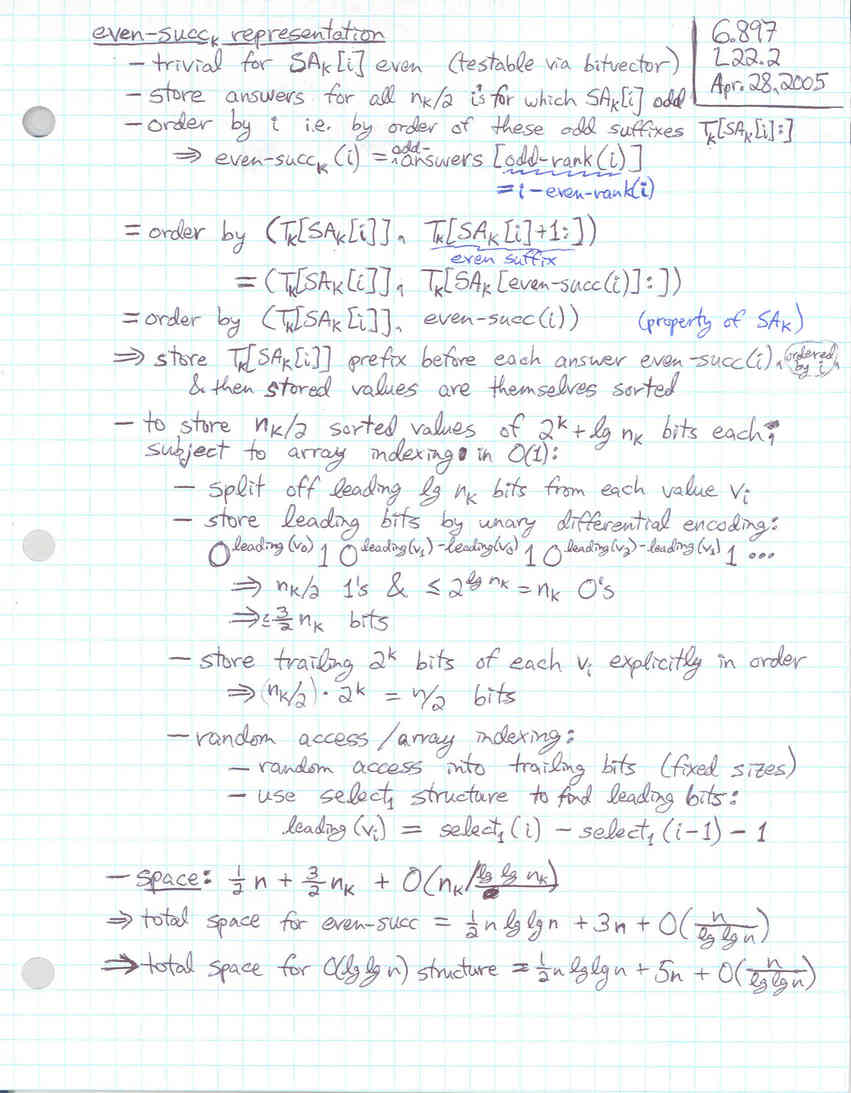 even-succₖ representation
6.897
L22.2
Apr. 28, 2005
– trivial for SAₖ[i] even (testable via bitvector)
– store answers for all nₖ/2 i's for which SAₖ[i] odd
– order by i i.e. by order of these odd suffixes Tₖ[SAₖ[i]:]
⇒ even-succₖ(i) = odd-answers [odd-rank(i)]
= i – even-rank(i)
= order by (Tₖ[SAₖ[i]], Tₖ[SAₖ[i]+1:])
even suffix
= (Tₖ[SAₖ[i]], Tₖ[SAₖ[even-succ(i)]:])
= order by (Tₖ[SAₖ[i]], even-succ(i)) (property of SAₖ)
⇒ store Tₖ[SAₖ[i]] prefix before each answer even-succ(i), ordered by i,
& then stored values are themselves sorted
– to store nₖ/2 sorted values of 2ᵏ + lg nₖ bits each,
subject to array indexing in O(1):
– split off leading lg nₖ bits from each value vᵢ
– store leading bits by unary differential encoding:
0^leading(v₀) 1 0^leading(v₁)-leading(v₀) 1 0^leading(v₂)-leading(v₁) 1 ...
⇒ nₖ/2 1's & ≤ 2^lg nₖ = nₖ 0's
⇒ ≤ 3/2 nₖ bits
– store trailing 2ᵏ bits of each vᵢ explicitly in order
⇒ (nₖ/2) · 2ᵏ = n/2 bits
– random access/array indexing:
– random access into trailing bits (fixed sizes)
– use select₁ structure to find leading bits:
leading(vᵢ) = select₁(i) – select₁(i-1) – 1
– space: ½ n + 3/2 nₖ + O(nₖ/lg lg nₖ)
⇒ total space for even-succ = ½ n lg lg n + 3n + O(n/lg lg n)
⇒ total space for O(lg lg n) structure = ½ n lg lg n + 5n + O(n/lg lg n)